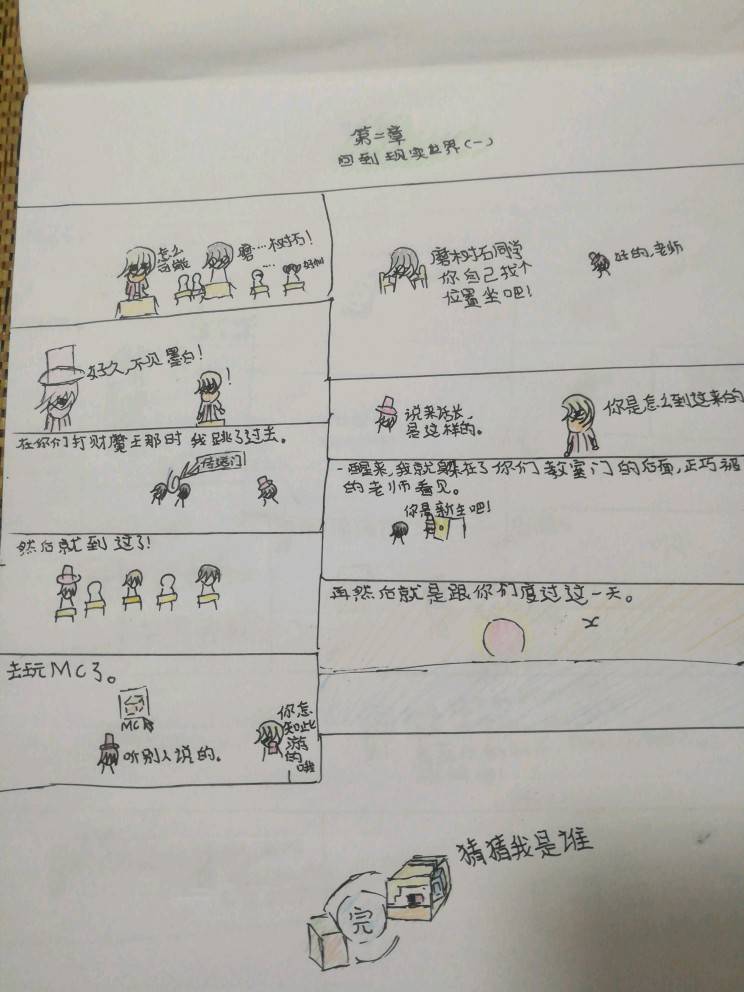 第二章
回到现实世界(一)
怎么
可能
磨……树拓!
……
好训
磨树拓同学
你自己找个
位置坐吧!
好的,老师
好久,不见墨白!
!
说来话长,
是这样的。
你是怎么到这来的
在你们打财魔王那时我跳了过去。
传送门
一醒来,我就躲在了你们教室门的后面,正巧被
的老师看见。
你是新生吧!
然后就到过了!
再然后就是跟你们度过这一天。
去玩MC了。
MC
听别人说的。
你怎
知此
游
的哦
猜猜我是谁
完